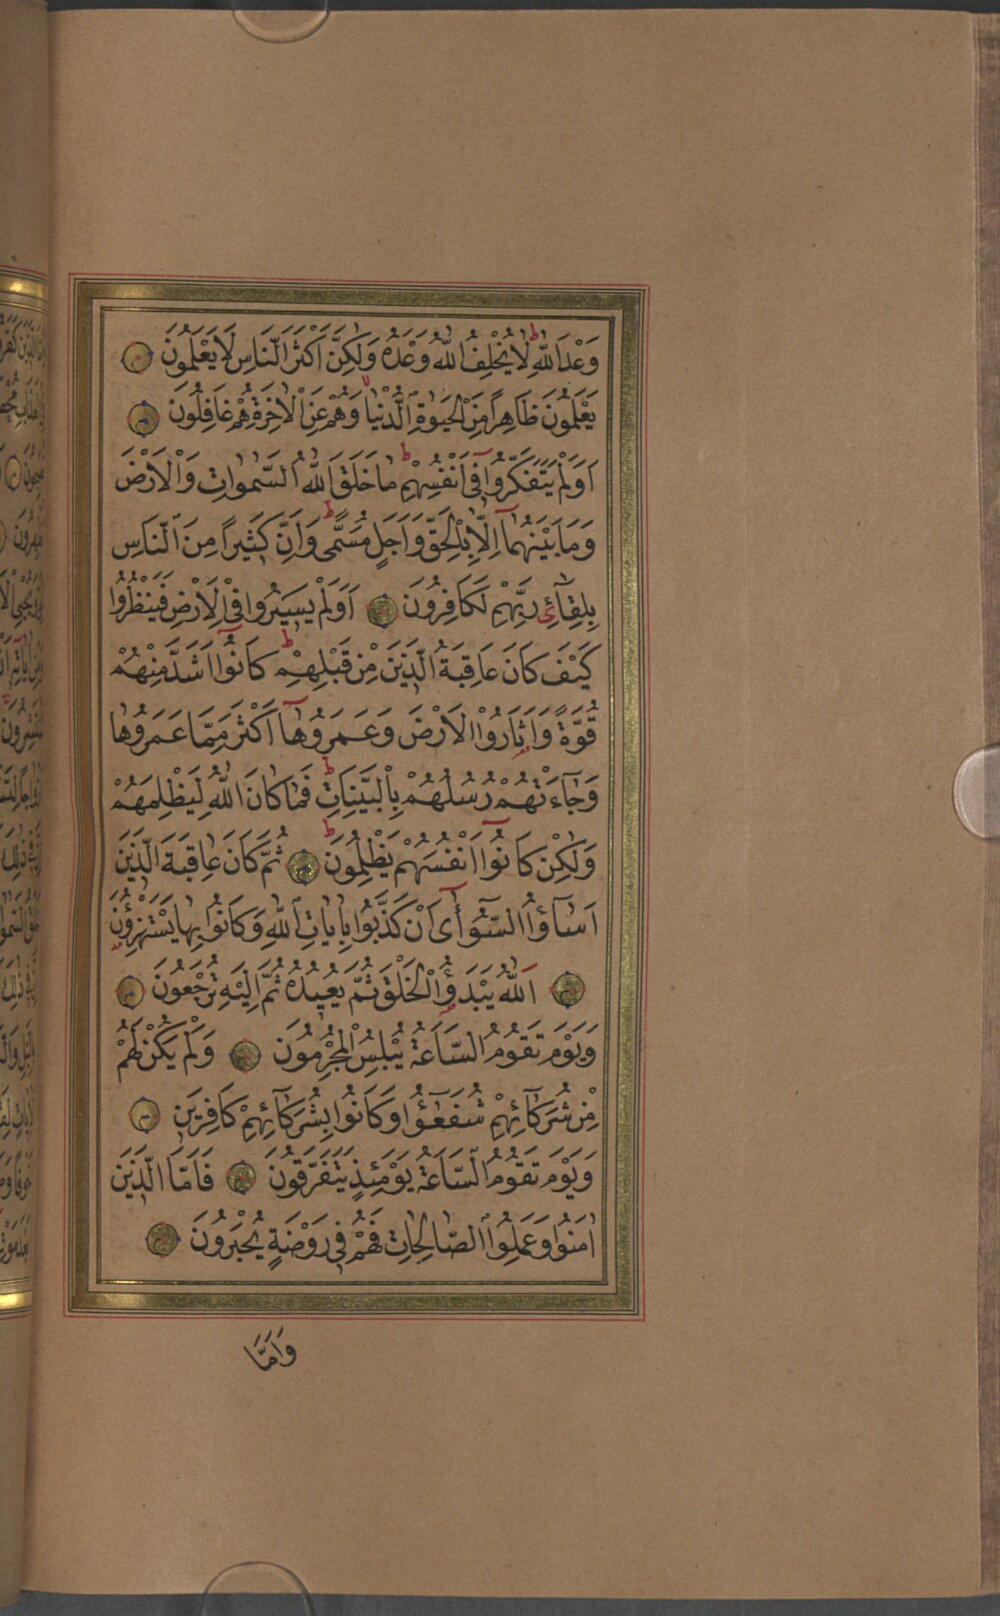 وَعْدَ اللّٰهِ لَا يُخْلِفُ اللّٰهُ وَعْدَهُ وَلٰكِنَّ اَكْثَرَ النَّاسِ لَا يَعْلَمُونَ
يَعْلَمُونَ ظَاهِرًا مِنَ الْحَيٰوةِ الدُّنْيَا وَهُمْ عَنِ الْاٰخِرَةِ هُمْ غَافِلُونَ
اَوَلَمْ يَتَفَكَّرُوا فٖى اَنْفُسِهِمْ مَا خَلَقَ اللّٰهُ السَّمٰوَاتِ وَالْاَرْضَ
وَمَا بَيْنَهُمَا اِلَّا بِالْحَقِّ وَاَجَلٍ مُسَمًّى وَاِنَّ كَثٖيرًا مِنَ النَّاسِ
بِلِقَائِ رَبِّهِمْ لَكَافِرُونَ اَوَلَمْ يَسٖيرُوا فِى الْاَرْضِ فَيَنْظُرُوا
كَيْفَ كَانَ عَاقِبَةُ الَّذٖينَ مِنْ قَبْلِهِمْ كَانُوا اَشَدَّ مِنْهُمْ
قُوَّةً وَاَثَارُوا الْاَرْضَ وَعَمَرُوهَا اَكْثَرَ مِمَّا عَمَرُوهَا
وَجَاءَتْهُمْ رُسُلُهُمْ بِالْبَيِّنَاتِ فَمَا كَانَ اللّٰهُ لِيَظْلِمَهُمْ
وَلٰكِنْ كَانُوا اَنْفُسَهُمْ يَظْلِمُونَ ثُمَّ كَانَ عَاقِبَةَ الَّذٖينَ
اَسَاؤُا السُّٓوآٰى اَنْ كَذَّبُوا بِاٰيَاتِ اللّٰهِ وَكَانُوا بِهَا يَسْتَهْزِؤُنَ
اَللّٰهُ يَبْدَؤُا الْخَلْقَ ثُمَّ يُعٖيدُهُ ثُمَّ اِلَيْهِ تُرْجَعُونَ
وَيَوْمَ تَقُومُ السَّاعَةُ يُبْلِسُ الْمُجْرِمُونَ وَلَمْ يَكُنْ لَهُمْ
مِنْ شُرَكَائِهِمْ شُفَعٰٓؤُا وَكَانُوا بِشُرَكَائِهِمْ كَافِرٖينَ
وَيَوْمَ تَقُومُ السَّاعَةُ يَوْمَئِذٍ يَتَفَرَّقُونَ فَاَمَّا الَّذٖينَ
اٰمَنُوا وَعَمِلُوا الصَّالِحَاتِ فَهُمْ فٖى رَوْضَةٍ يُحْبَرُونَ
وَاَمَّا